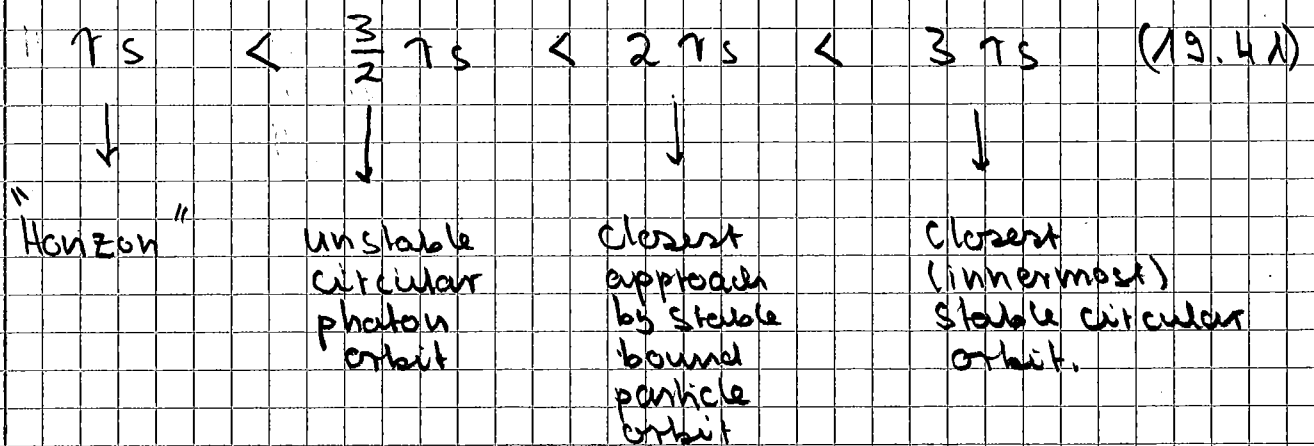 rs < 3/2 rs < 2 rs < 3 rs (19.41)
"Horizon"
unstable
circular
photon
orbit
closest
approach
by stable
bound
particle
orbit
closest
(innermost)
stable circular
orbit.